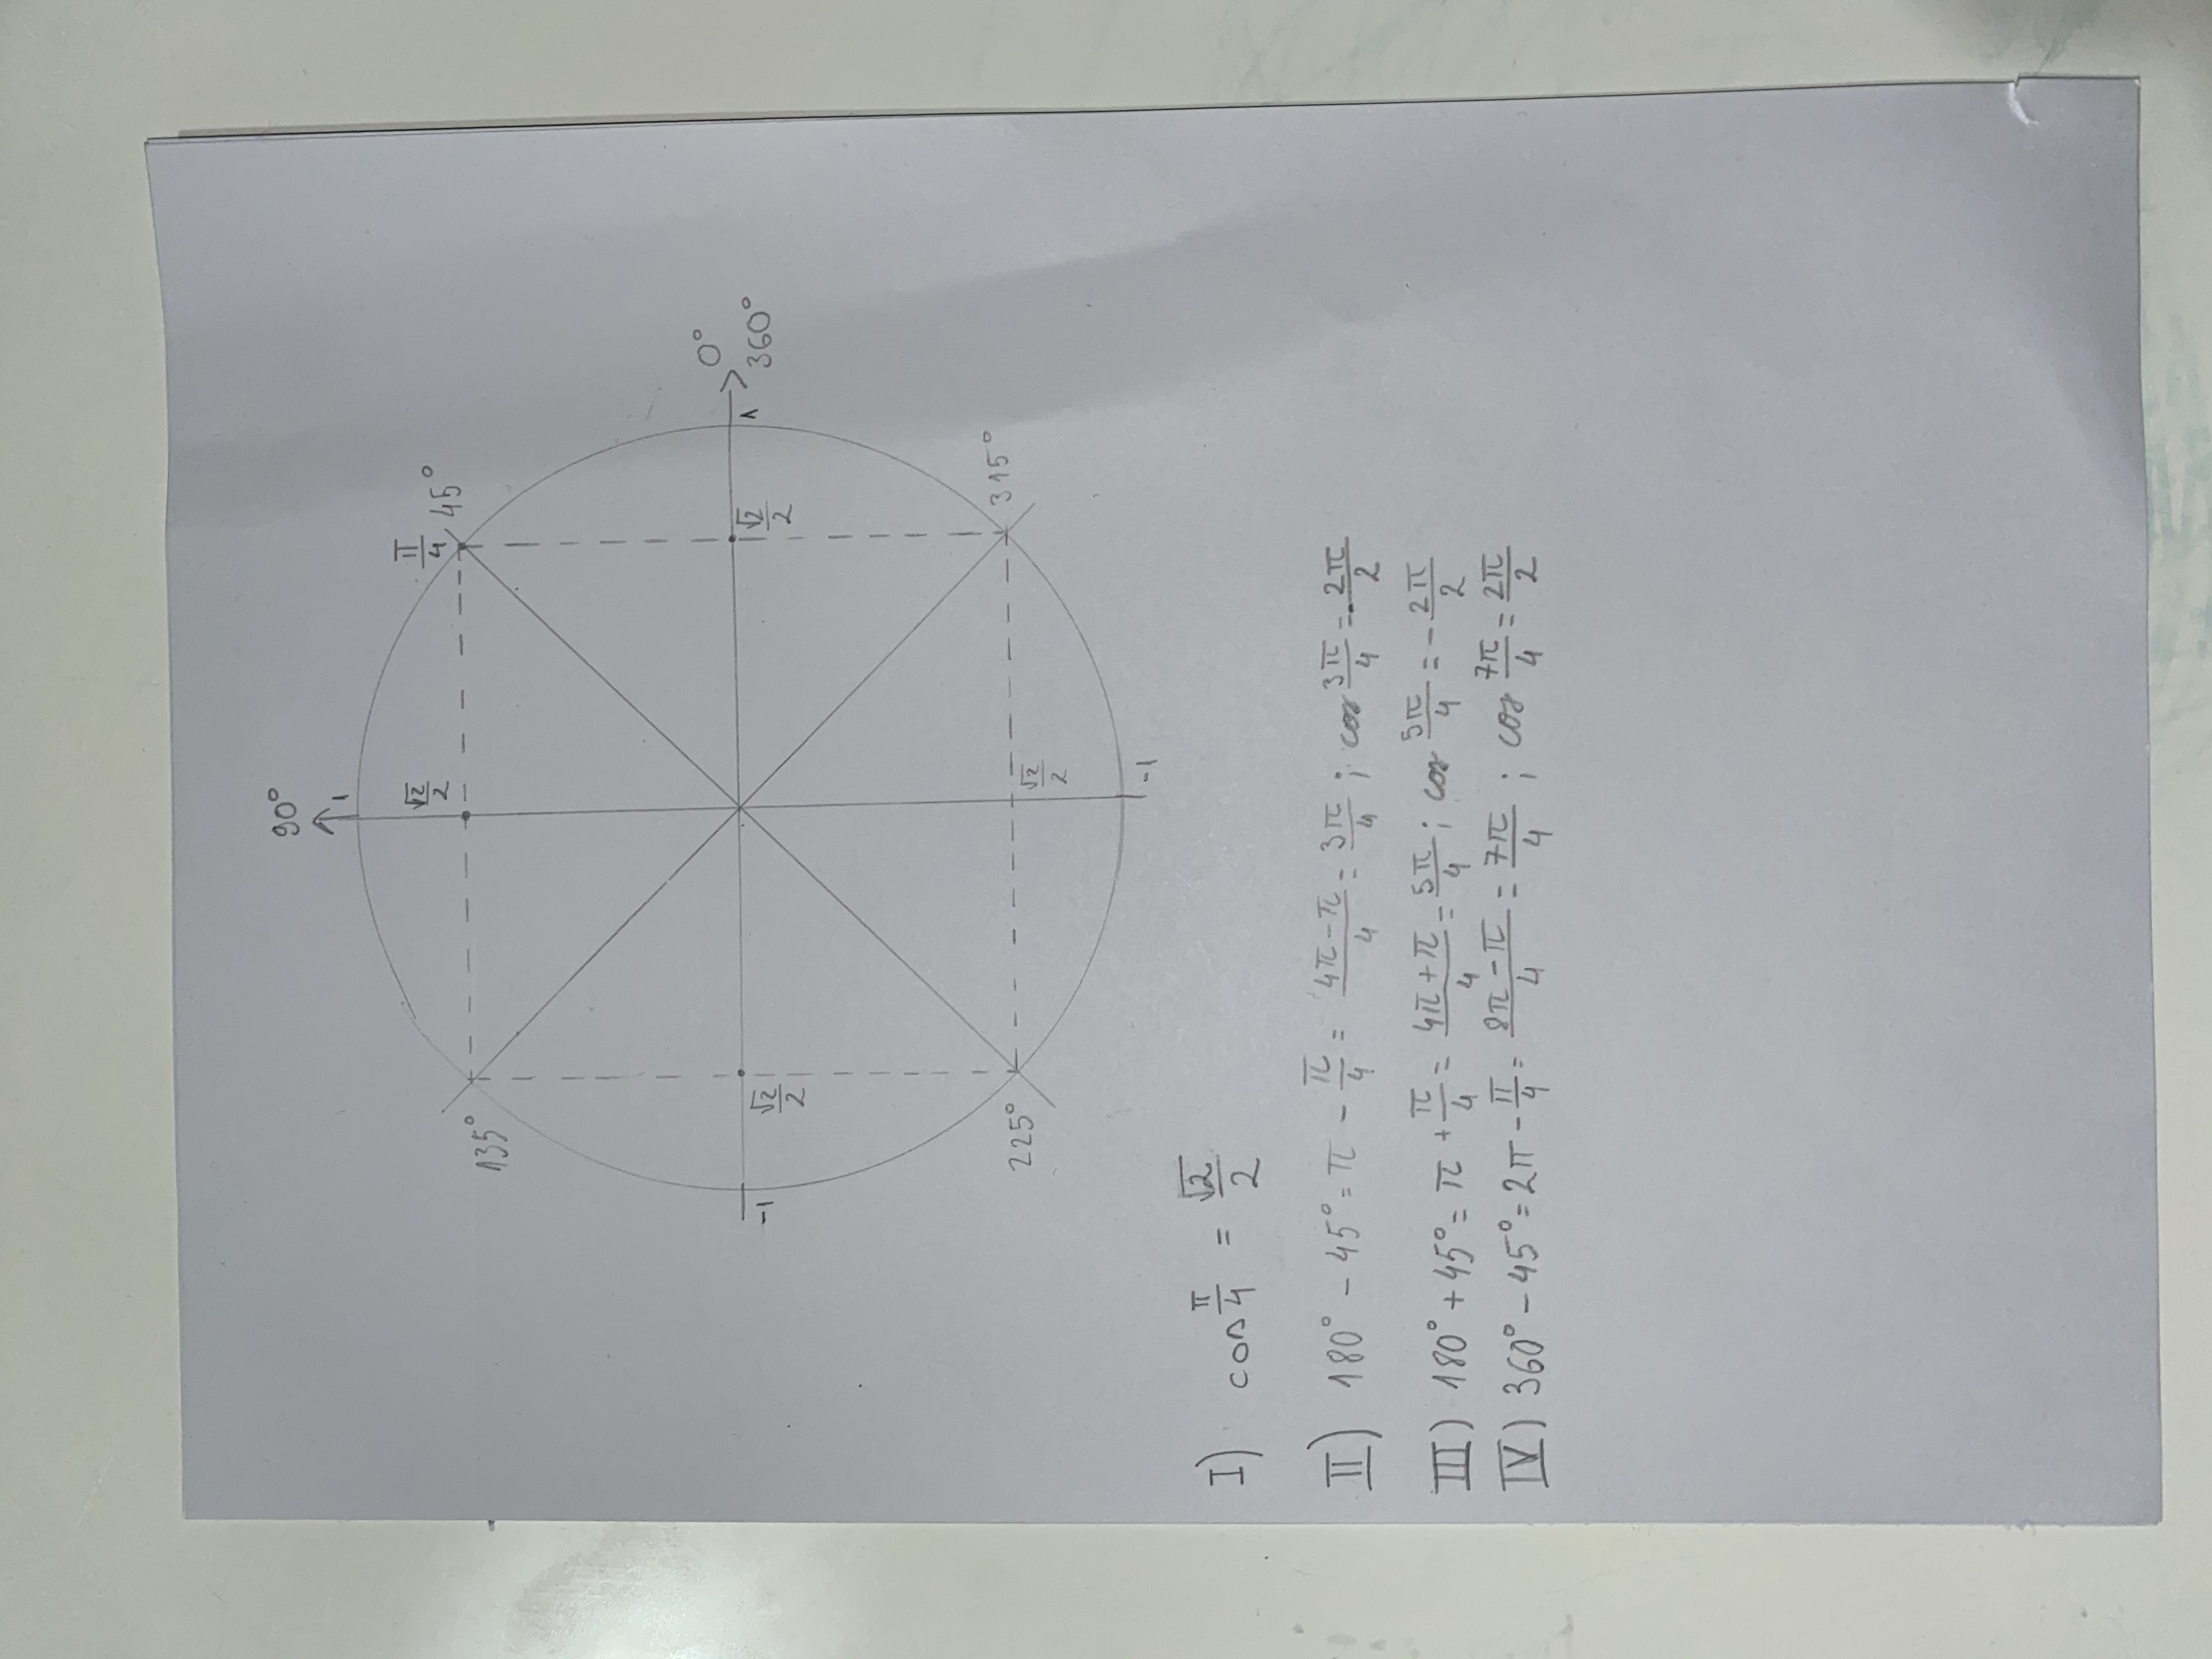 90°
1
√2/2
π/4 45°
135°
0°
-1 √2/2 √2/2 1 360°
225° 315°
√2/2
-1
I) cos π/4 = √2/2
II) 180° - 45° = π - π/4 = (4π - π)/4 = 3π/4 ; cos 3π/4 = - 2π/2
III) 180° + 45° = π + π/4 = (4π + π)/4 = 5π/4 ; cos 5π/4 = - 2π/2
IV) 360° - 45° = 2π - π/4 = (8π - π)/4 = 7π/4 ; cos 7π/4 = 2π/2